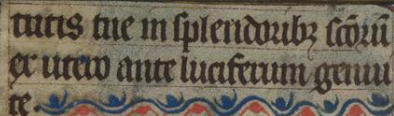 tutis tue in splendoribꝫ scōrū
ex utero ante luciferum genui
te.